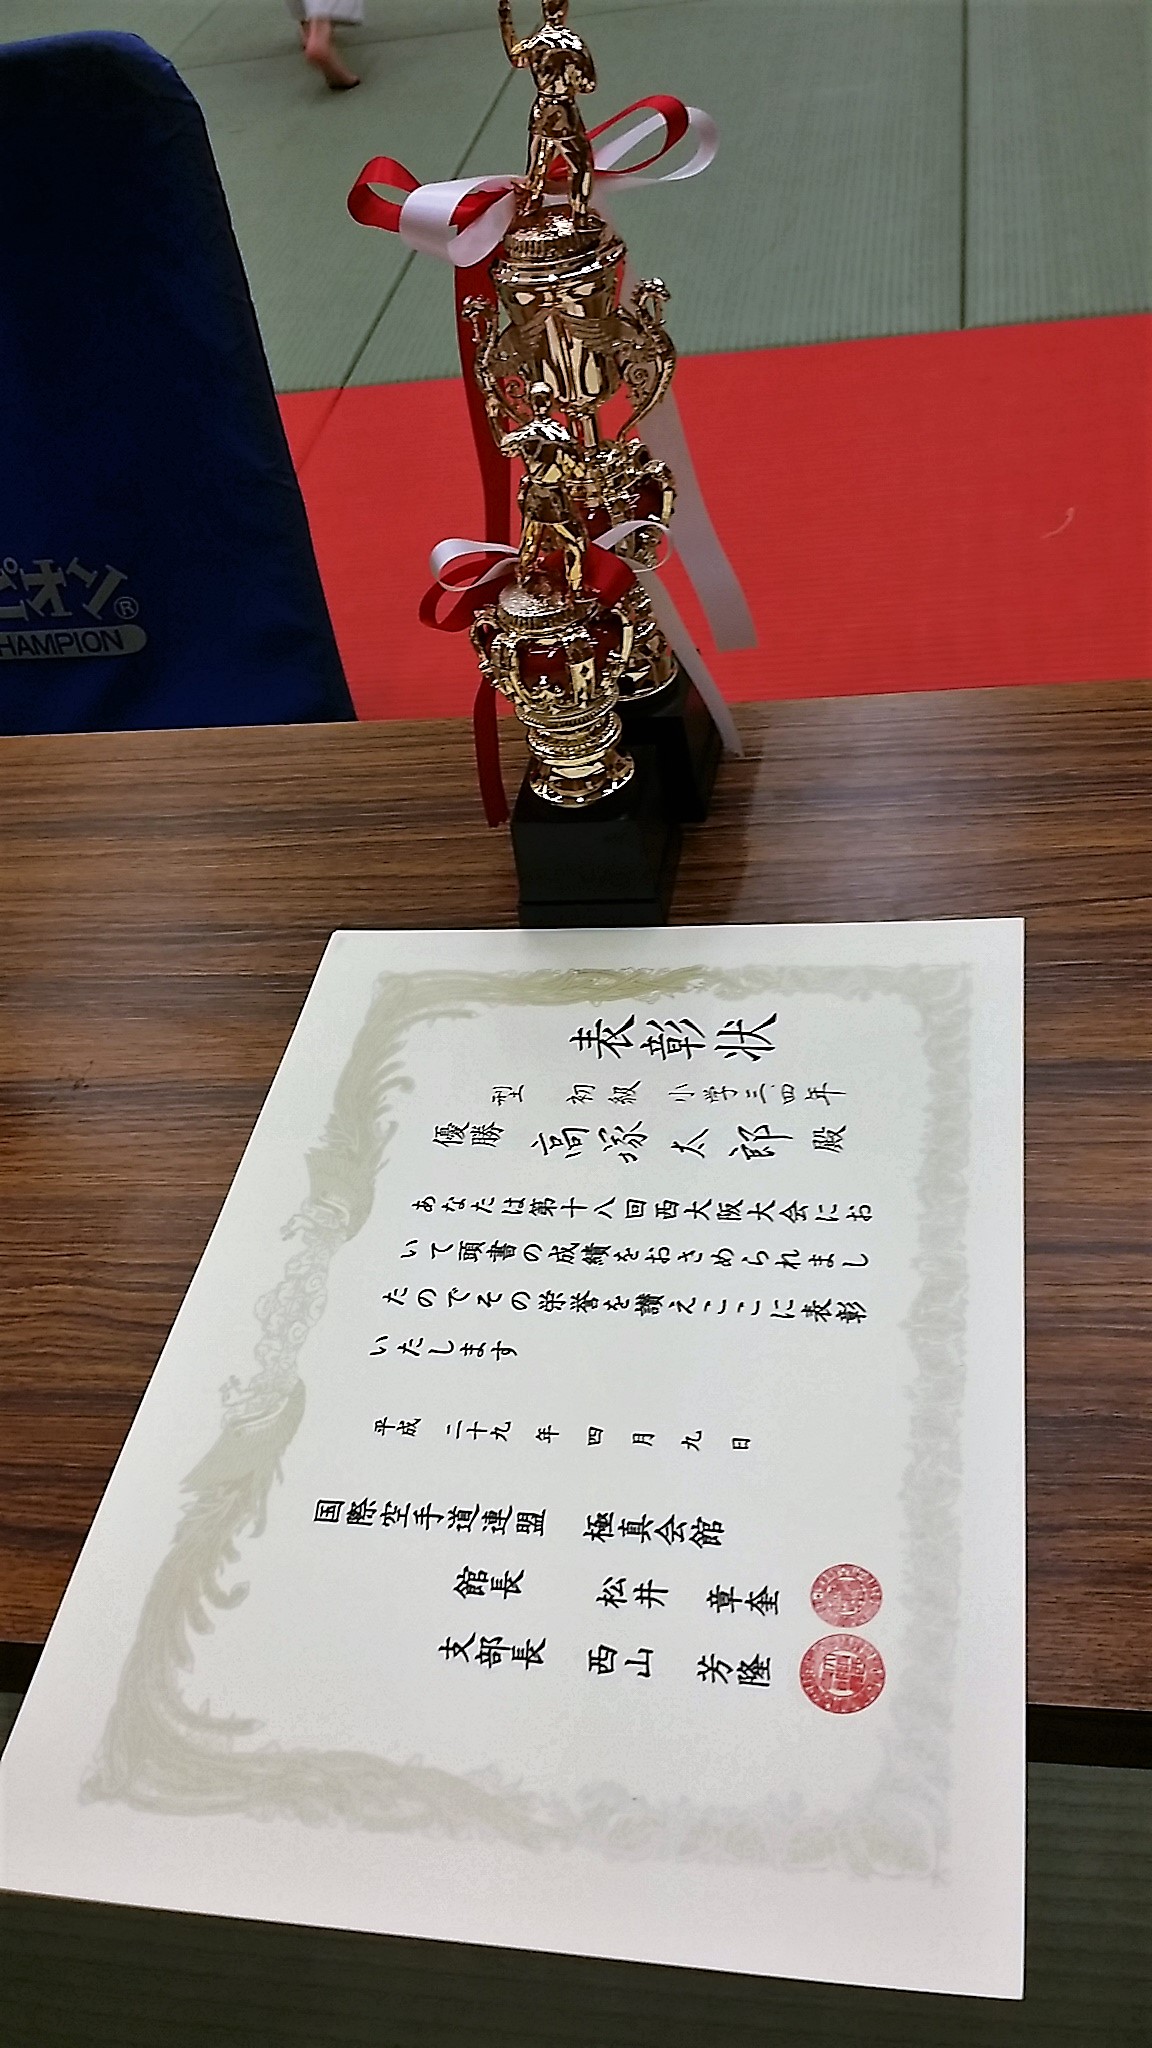 ピオン®
CHAMPION
表彰状
型 初級 小学三、四年
優勝 高塚太郎殿
あなたは第十八回西大阪大会にお
いて頭書の成績をおさめられまし
たのでその栄誉を讃えここに表彰
いたします
平成二十九年四月九日
国際空手道連盟 極真会館
館長 松井章奎
支部長 西山芳隆